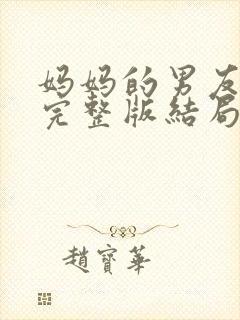 妈妈的男友
完整版结局
趙寶華